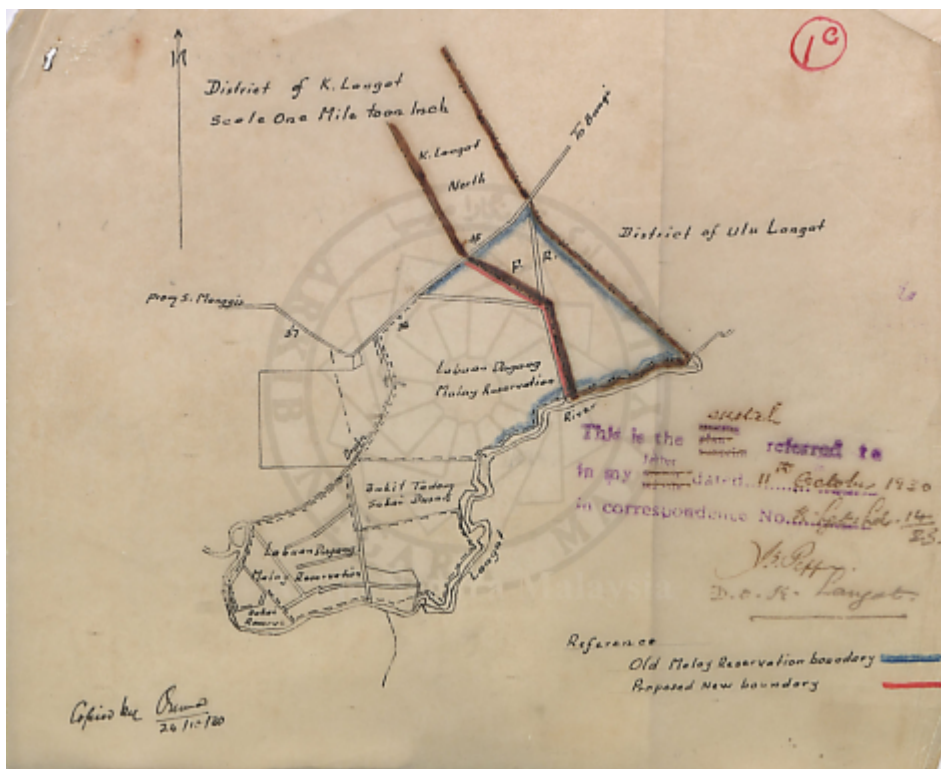 1c
N
District of K. Langat
Scale One Mile to an Inch
K. Langat
North
To Bangi
District of Ulu Langat
F. R.
from S. Manggis
37
Labuan Dagang
Malay Reservation
River
Bukit Tadong
Sakai
Langat
Labuan Dagang
Malay Reservation
Sakai
Reserve
sketch
This is the referred to
in my letter dated 11th October 1930
in correspondence No.
D.O. K. Langat.
Reference
Old Malay Reservation boundary
Proposed New boundary
Copied by